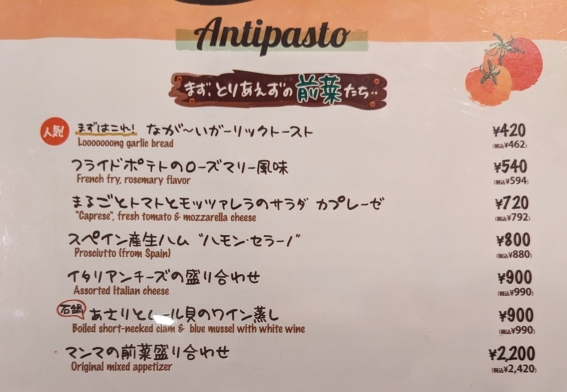 Antipasto
まず、とりあえずの前菜たち‥
人気! まずはこれ! なが〜いガーリックトースト ¥420
Looooooong garlic bread (税込¥462)
フライドポテトのローズマリー風味 ¥540
French fry, rosemary flavor (税込¥594)
まるごとトマトとモッツァレラのサラダ カプレーゼ ¥720
"Caprese", fresh tomato & mozzarella cheese (税込¥792)
スペイン産生ハム "ハモン・セラーノ" ¥800
Prosciutto (from Spain) (税込¥880)
イタリアンチーズの盛り合わせ ¥900
Assorted Italian cheese (税込¥990)
石鍋 あさりとムール貝のワイン蒸し ¥900
Boiled short-necked clam & blue mussel with white wine (税込¥990)
マンマの前菜盛り合わせ ¥2,200
Original mixed appetizer (税込¥2,420)